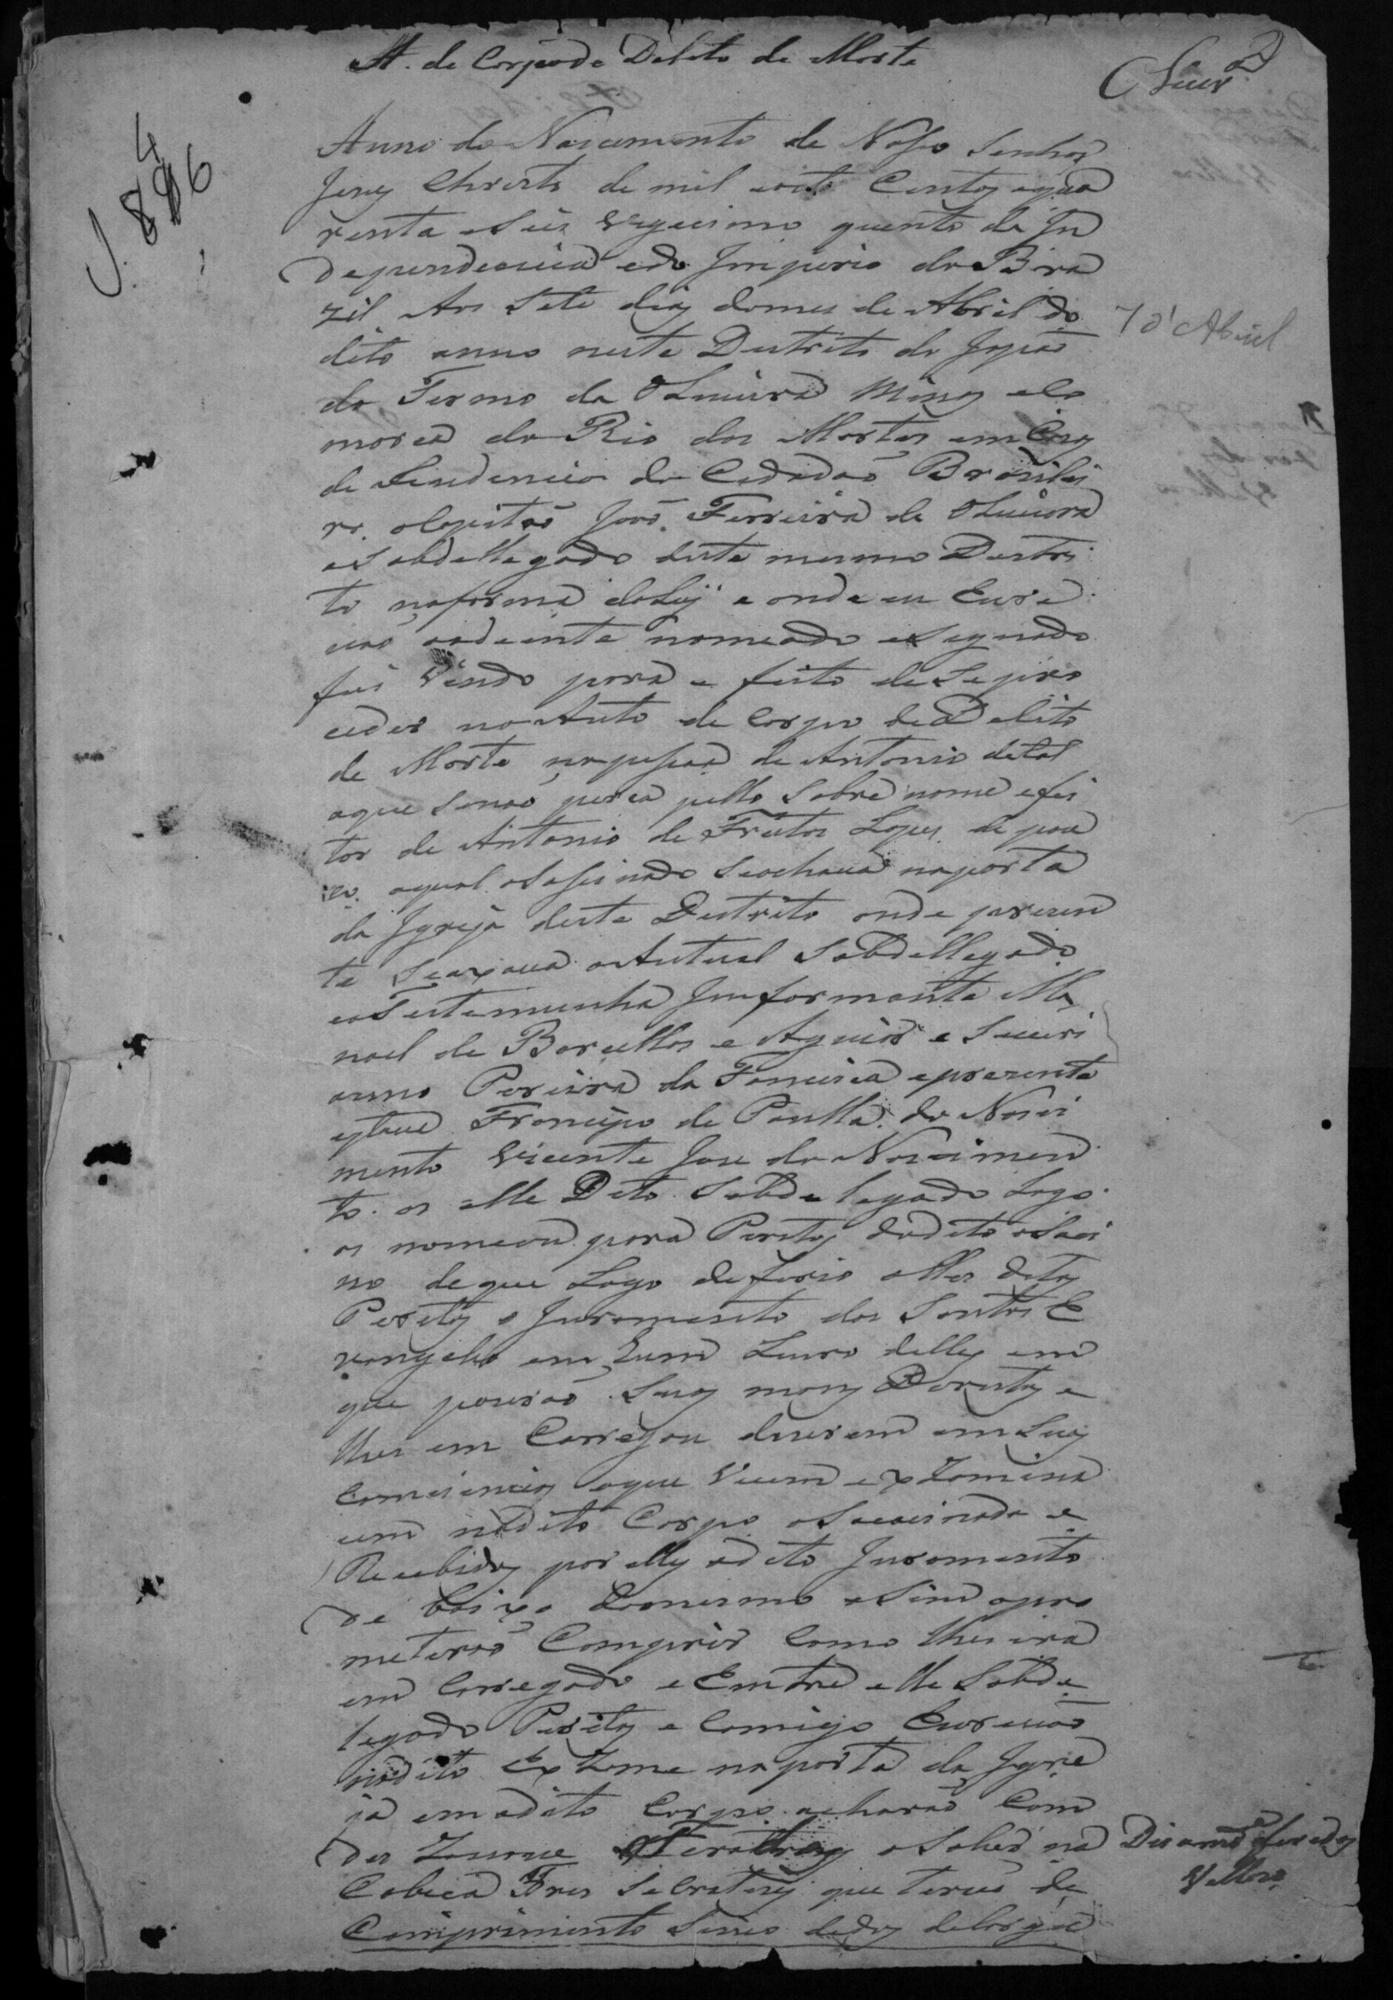 A. de Corpo de Delito de Morte
J. 1846
Anno do Nascimento de Noso Senhor
Jezus Christo de mil oito Centos equa
renta eseis vegecimo quinto da In
dependencia edo Imperio do Bra
zil Aos Sete dias domes de Abril do
7 d'Abril
dito anno neste Destrito do Japão
do Termo da Oliveira Minas eCo
marca do Rio das Mortes em Caza
de Rezidencia do Cidadão Brazilei
ro oCapitão João Ferreira de Oliveira
eSubdellegado deste mesmo Destri
to naforma daLey e onde eu Escri
vão aodiante nomeado easignado
fui vindo para e feito deSepro
ceder no Auto de Corpo de Delito
de Morte napesoa de Antonio detal
aque senão pello Sobre nome efei
tor de Antonio de Freitas Lopes
oqual asasinado Seachava naporta
da Igreja deste Destrito onde prezen
te Seaxava oAutual Subdellegado
eaTestemunha Imformante Ma
noel de Barcellos e Aguiar e Severi
anno Pereira da Fonceca eprezente
Francisco de Paulla do Nasci
mento Vicente Joze do Nascimen
to os elle Dito Subdelegado Logo
os nomeou para Peritos dodito asaci
no de que Logo deferio aelles ditos
Peritos o Juramento dos Santos E
vangelho em hum Livro delles em
que pouzarão Suas mons Dereitas e
lhes em Carregou dicesem em Suas
Comciencias oque vicem e xzamina
cem nodito Corpo asacinado e
Recebidos por elles odito Juramento
de baixo domesmo aSim opro
meterão Comprir Como lhes era
em Carregado e Emtre elle Subde
legado Peritos e Comigo Escrivão
nodito Exzame naporta da Igre
ja em odito Corpo acharão Com
dos aSaber na
Cabeca Tres que terão de
Comprimento Sinco dedos delargu